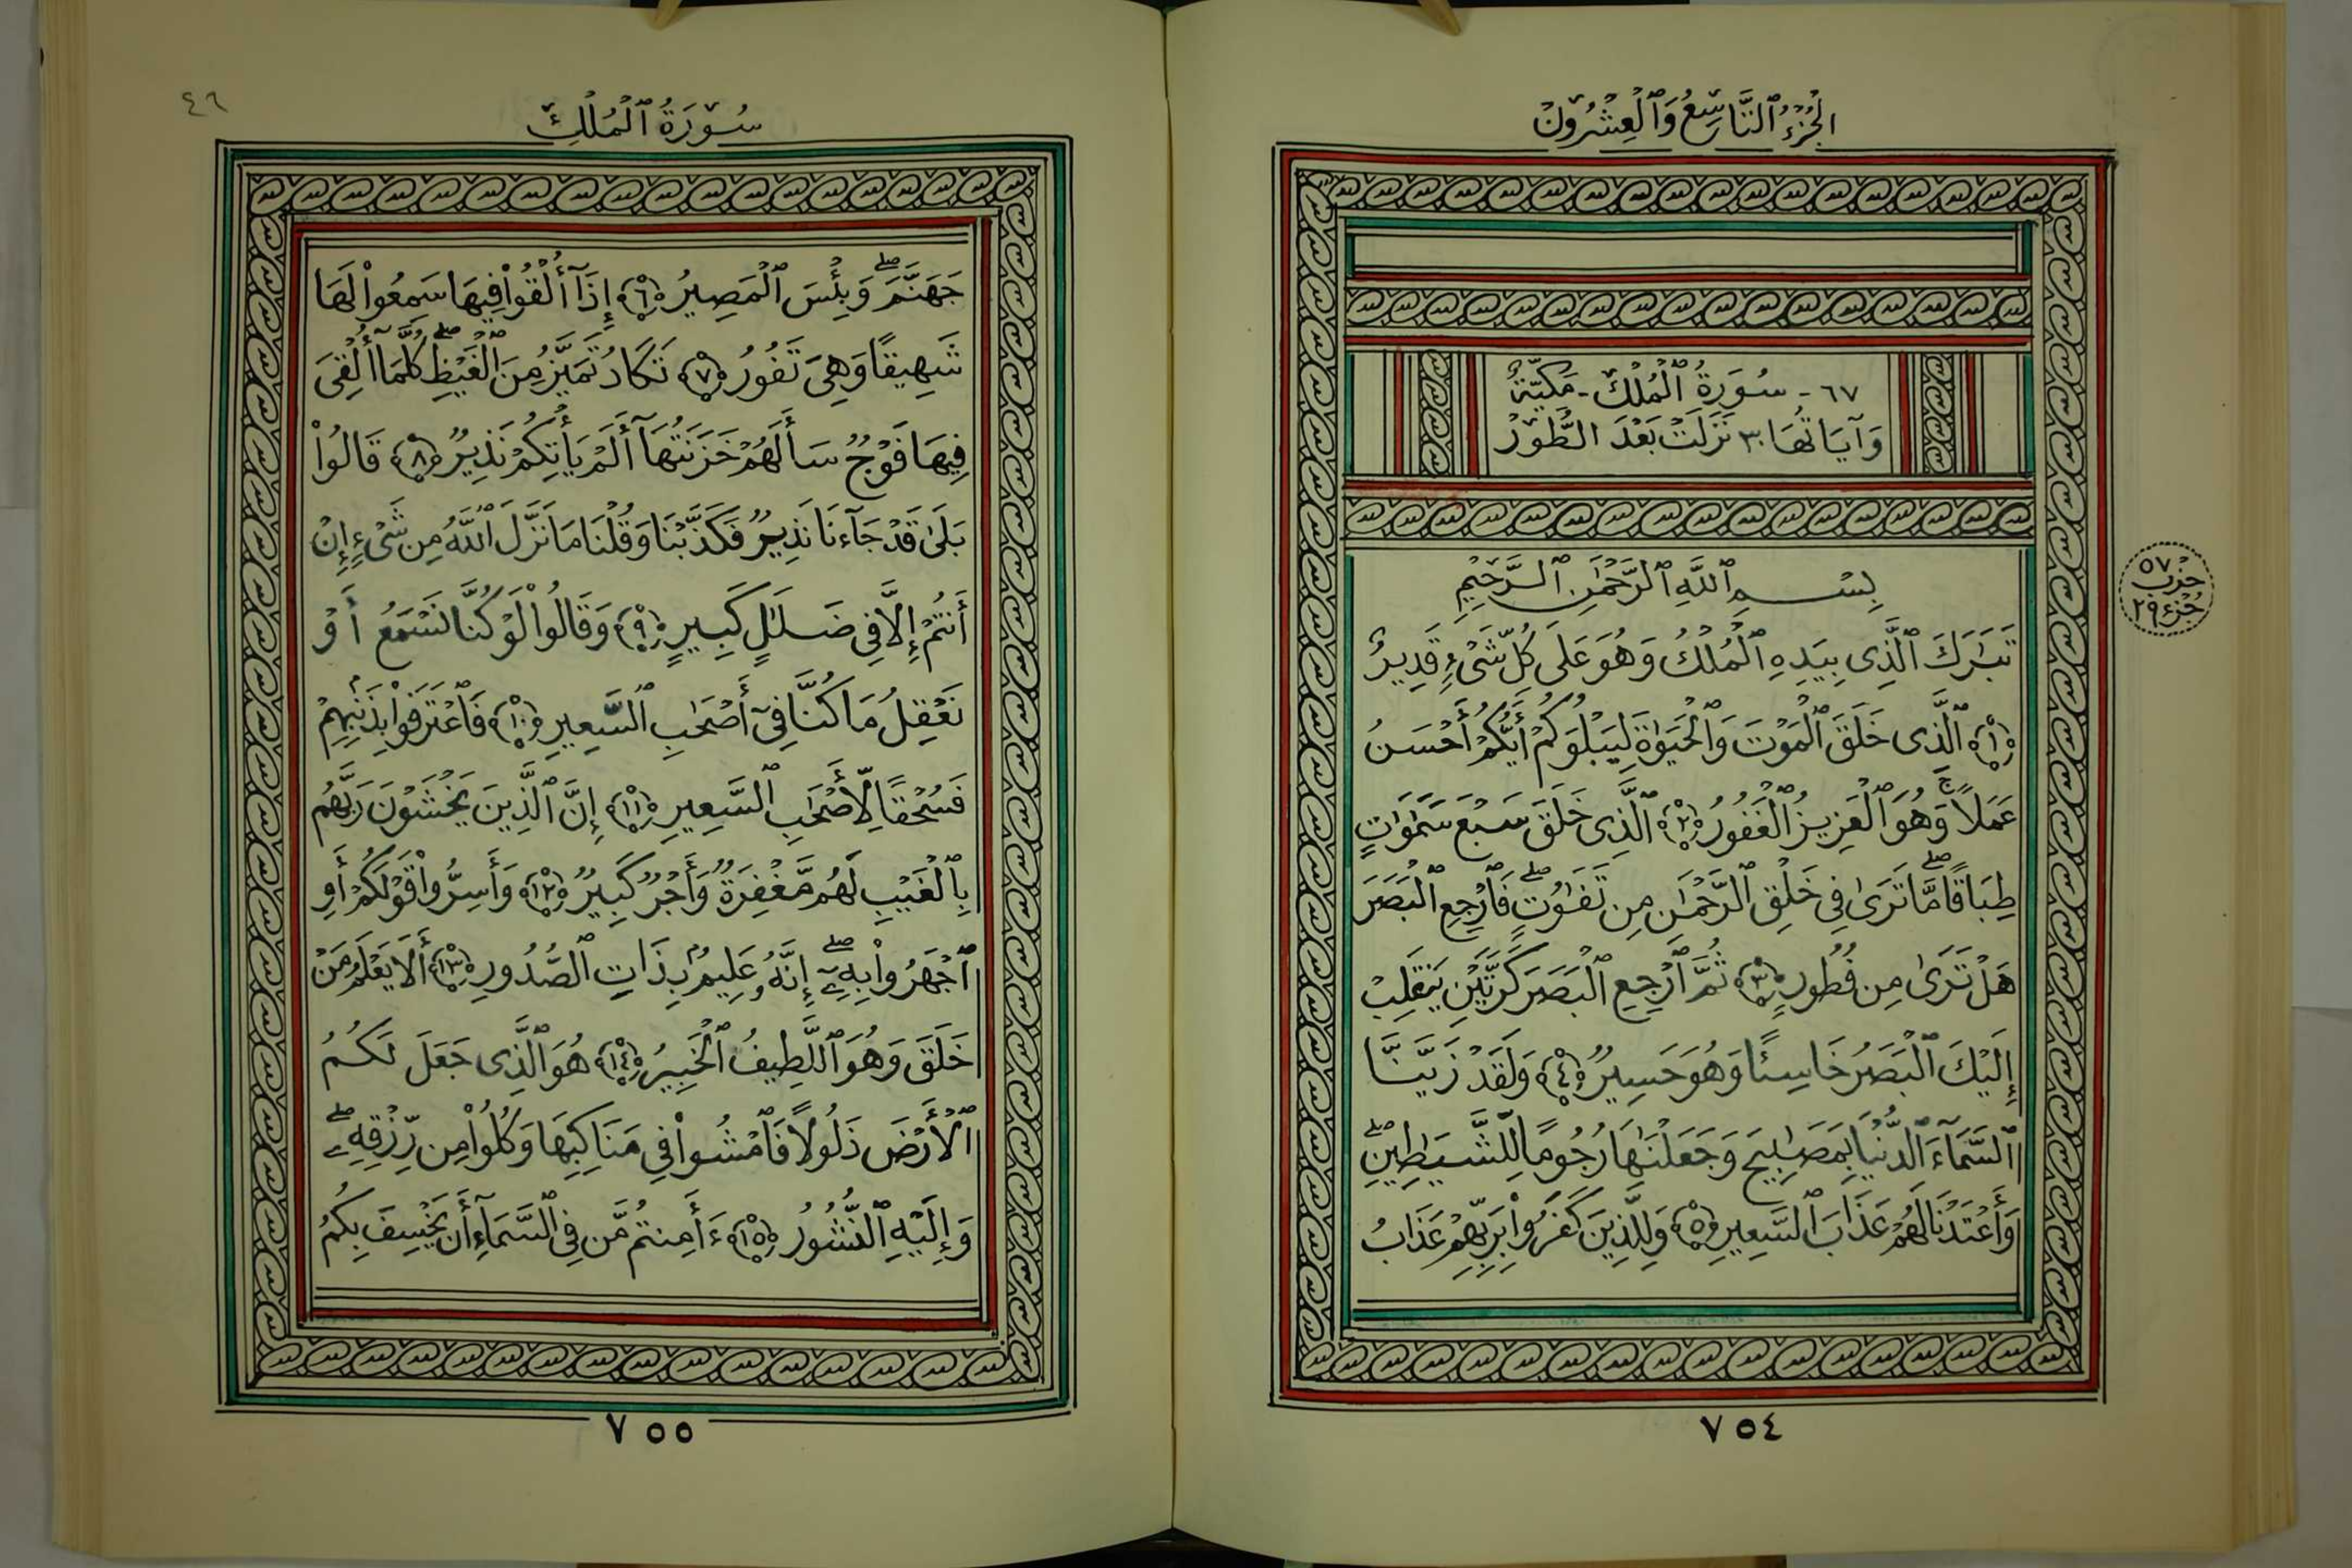 الجُزْءُ ٱلتَّاسِعُ وَٱلْعِشْرُونَ
٦٧ - سُورَةُ ٱلْمُلْكِ - مَكِّيَّةٌ
وَآيَاتُهَا ٣٠ نَزَلَتْ بَعْدَ الطُّورِ
حزب ٥٧
جزء ٢٩
بِسْمِ ٱللَّهِ ٱلرَّحْمَٰنِ ٱلرَّحِيمِ
تَبَٰرَكَ ٱلَّذِى بِيَدِهِ ٱلْمُلْكُ وَهُوَ عَلَىٰ كُلِّ شَىْءٍ قَدِيرٌ
﴿١﴾ ٱلَّذِى خَلَقَ ٱلْمَوْتَ وَٱلْحَيَوٰةَ لِيَبْلُوَكُمْ أَيُّكُمْ أَحْسَنُ
عَمَلًا ۚ وَهُوَ ٱلْعَزِيزُ ٱلْغَفُورُ ﴿٢﴾ ٱلَّذِى خَلَقَ سَبْعَ سَمَٰوَٰتٍ
طِبَاقًا ۖ مَّا تَرَىٰ فِى خَلْقِ ٱلرَّحْمَٰنِ مِن تَفَٰوُتٍ ۖ فَٱرْجِعِ ٱلْبَصَرَ
هَلْ تَرَىٰ مِن فُطُورٍ ﴿٣﴾ ثُمَّ ٱرْجِعِ ٱلْبَصَرَ كَرَّتَيْنِ يَنقَلِبْ
إِلَيْكَ ٱلْبَصَرُ خَاسِئًا وَهُوَ حَسِيرٌ ﴿٤﴾ وَلَقَدْ زَيَّنَّا
ٱلسَّمَآءَ ٱلدُّنْيَا بِمَصَٰبِيحَ وَجَعَلْنَٰهَا رُجُومًا لِّلشَّيَٰطِينِ ۖ
وَأَعْتَدْنَا لَهُمْ عَذَابَ ٱلسَّعِيرِ ﴿٥﴾ وَلِلَّذِينَ كَفَرُوا۟ بِرَبِّهِمْ عَذَابُ
٧٥٤
٤٦
سُورَةُ ٱلْمُلْكِ
جَهَنَّمَ ۖ وَبِئْسَ ٱلْمَصِيرُ ﴿٦﴾ إِذَآ أُلْقُوا۟ فِيهَا سَمِعُوا۟ لَهَا
شَهِيقًا وَهِىَ تَفُورُ ﴿٧﴾ تَكَادُ تَمَيَّزُ مِنَ ٱلْغَيْظِ ۖ كُلَّمَآ أُلْقِىَ
فِيهَا فَوْجٌ سَأَلَهُمْ خَزَنَتُهَآ أَلَمْ يَأْتِكُمْ نَذِيرٌ ﴿٨﴾ قَالُوا۟
بَلَىٰ قَدْ جَآءَنَا نَذِيرٌ فَكَذَّبْنَا وَقُلْنَا مَا نَزَّلَ ٱللَّهُ مِن شَىْءٍ إِنْ
أَنتُمْ إِلَّا فِى ضَلَٰلٍ كَبِيرٍ ﴿٩﴾ وَقَالُوا۟ لَوْ كُنَّا نَسْمَعُ أَوْ
نَعْقِلُ مَا كُنَّا فِىٓ أَصْحَٰبِ ٱلسَّعِيرِ ﴿١٠﴾ فَٱعْتَرَفُوا۟ بِذَنۢبِهِمْ
فَسُحْقًا لِّأَصْحَٰبِ ٱلسَّعِيرِ ﴿١١﴾ إِنَّ ٱلَّذِينَ يَخْشَوْنَ رَبَّهُم
بِٱلْغَيْبِ لَهُم مَّغْفِرَةٌ وَأَجْرٌ كَبِيرٌ ﴿١٢﴾ وَأَسِرُّوا۟ قَوْلَكُمْ أَوِ
ٱجْهَرُوا۟ بِهِۦٓ ۖ إِنَّهُۥ عَلِيمٌۢ بِذَاتِ ٱلصُّدُورِ ﴿١٣﴾ أَلَا يَعْلَمُ مَنْ
خَلَقَ وَهُوَ ٱللَّطِيفُ ٱلْخَبِيرُ ﴿١٤﴾ هُوَ ٱلَّذِى جَعَلَ لَكُمُ
ٱلْأَرْضَ ذَلُولًا فَٱمْشُوا۟ فِى مَنَاكِبِهَا وَكُلُوا۟ مِن رِّزْقِهِۦ ۖ
وَإِلَيْهِ ٱلنُّشُورُ ﴿١٥﴾ ءَأَمِنتُم مَّن فِى ٱلسَّمَآءِ أَن يَخْسِفَ بِكُمُ
٧٥٥